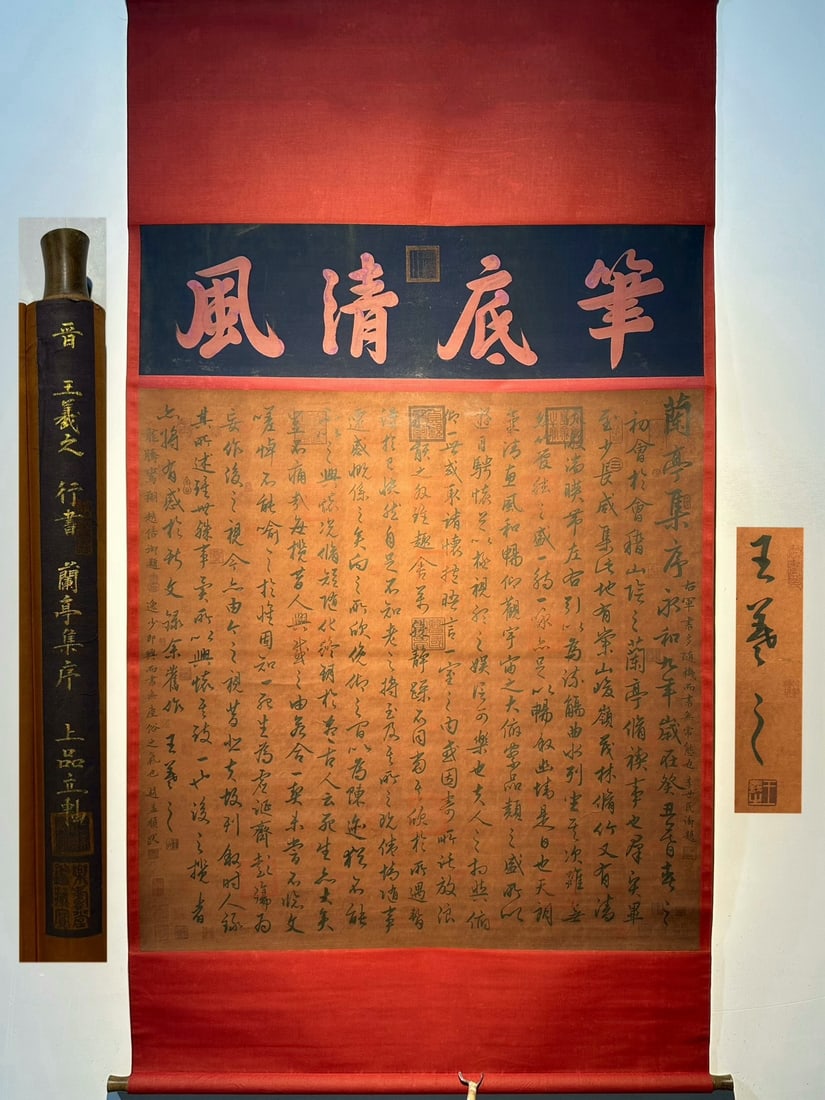 筆底清風
蘭亭集序 永和九年歲在癸丑暮春之
右軍書多隨機而書無常態也李世民御題
初會於會稽山陰之蘭亭脩禊事也羣賢畢
至少長咸集此地有崇山峻嶺茂林脩竹又有清
流激湍暎帶左右引以為流觴曲水列坐其次雖無
絲竹管絃之盛一觴一詠亦足以暢敘幽情是日也天朗
氣清惠風和暢仰觀宇宙之大俯察品類之盛所以
遊目騁懷足以極視聽之娛信可樂也夫人之相與俯
仰一世或取諸懷抱晤言一室之內或因寄所託放浪
形骸之外雖趣舍萬殊靜躁不同當其欣於所遇暫
得於己快然自足不知老之將至及其所之既倦情隨事
遷感慨係之矣向之所欣俛仰之間以為陳迹猶不能
不以之興懷況脩短隨化終期於盡古人云死生亦大矣
豈不痛哉每攬昔人興感之由若合一契未嘗不臨文
嗟悼不能喻之於懷固知一死生為虛誕齊彭殤為
妄作後之視今亦由今之視昔悲夫故列敘時人錄
其所述雖世殊事異所以興懷其致一也後之攬者
亦將有感於斯文 王羲之
龍騰鸞翔趙佶御題
逸少即興而書無塵俗之氣也趙孟頫跋
晉 王羲之 行書 蘭亭集序 上品立軸
王羲之